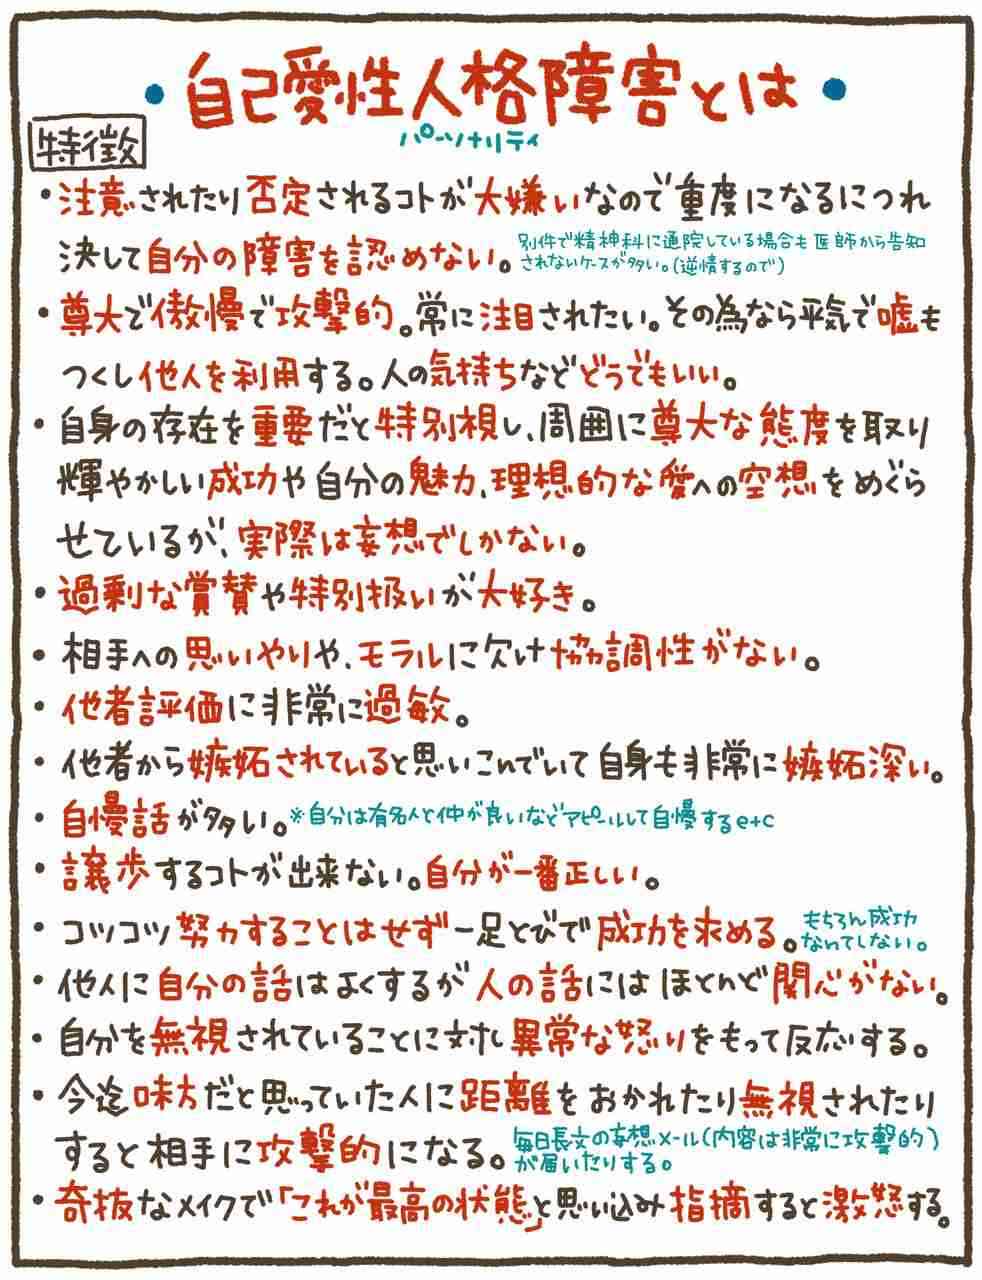 ・自己愛性人格障害とは・
パーソナリティ
特徴
・注意されたり否定されるコトが大嫌いなので重度になるにつれ
決して自分の障害を認めない。別件で精神科に通院している場合も医師から告知
されないケースが多い。(逆情するので)
・尊大で傲慢で攻撃的。常に注目されたい。その為なら平気で嘘も
つくし他人を利用する。人の気持ちなどどうでもいい。
・自身の存在を重要だと特別視し、周囲に尊大な態度を取り
輝やかしい成功や自分の魅力、理想的な愛への空想をめぐら
せているが、実際は妄想でしかない。
・過剰な賞賛や特別扱いが大好き。
・相手への思いやりや、モラルに欠け協調性がない。
・他者評価に非常に過敏。
・他者から嫉妬されていると思いこんでいて自身も非常に嫉妬深い。
・自慢話が多い。※自分は有名人と仲が良いなどアピールして自慢するe+c
・譲歩するコトが出来ない。自分が一番正しい。
・コツコツ努力することはせず一足とびで成功を求める。もちろん成功
なんてしない。
・他人に自分の話はよくするが人の話にはほとんど関心がない。
・自分を無視されていることに対し異常な怒りをもって反応する。
・今迄味方だと思っていた人に距離をおかれたり無視されたり
すると相手に攻撃的になる。毎日長文の妄想メール(内容は非常に攻撃的)
が届いたりする。
・奇抜なメイクで「これが最高の状態」と思い込み指摘すると激怒する。